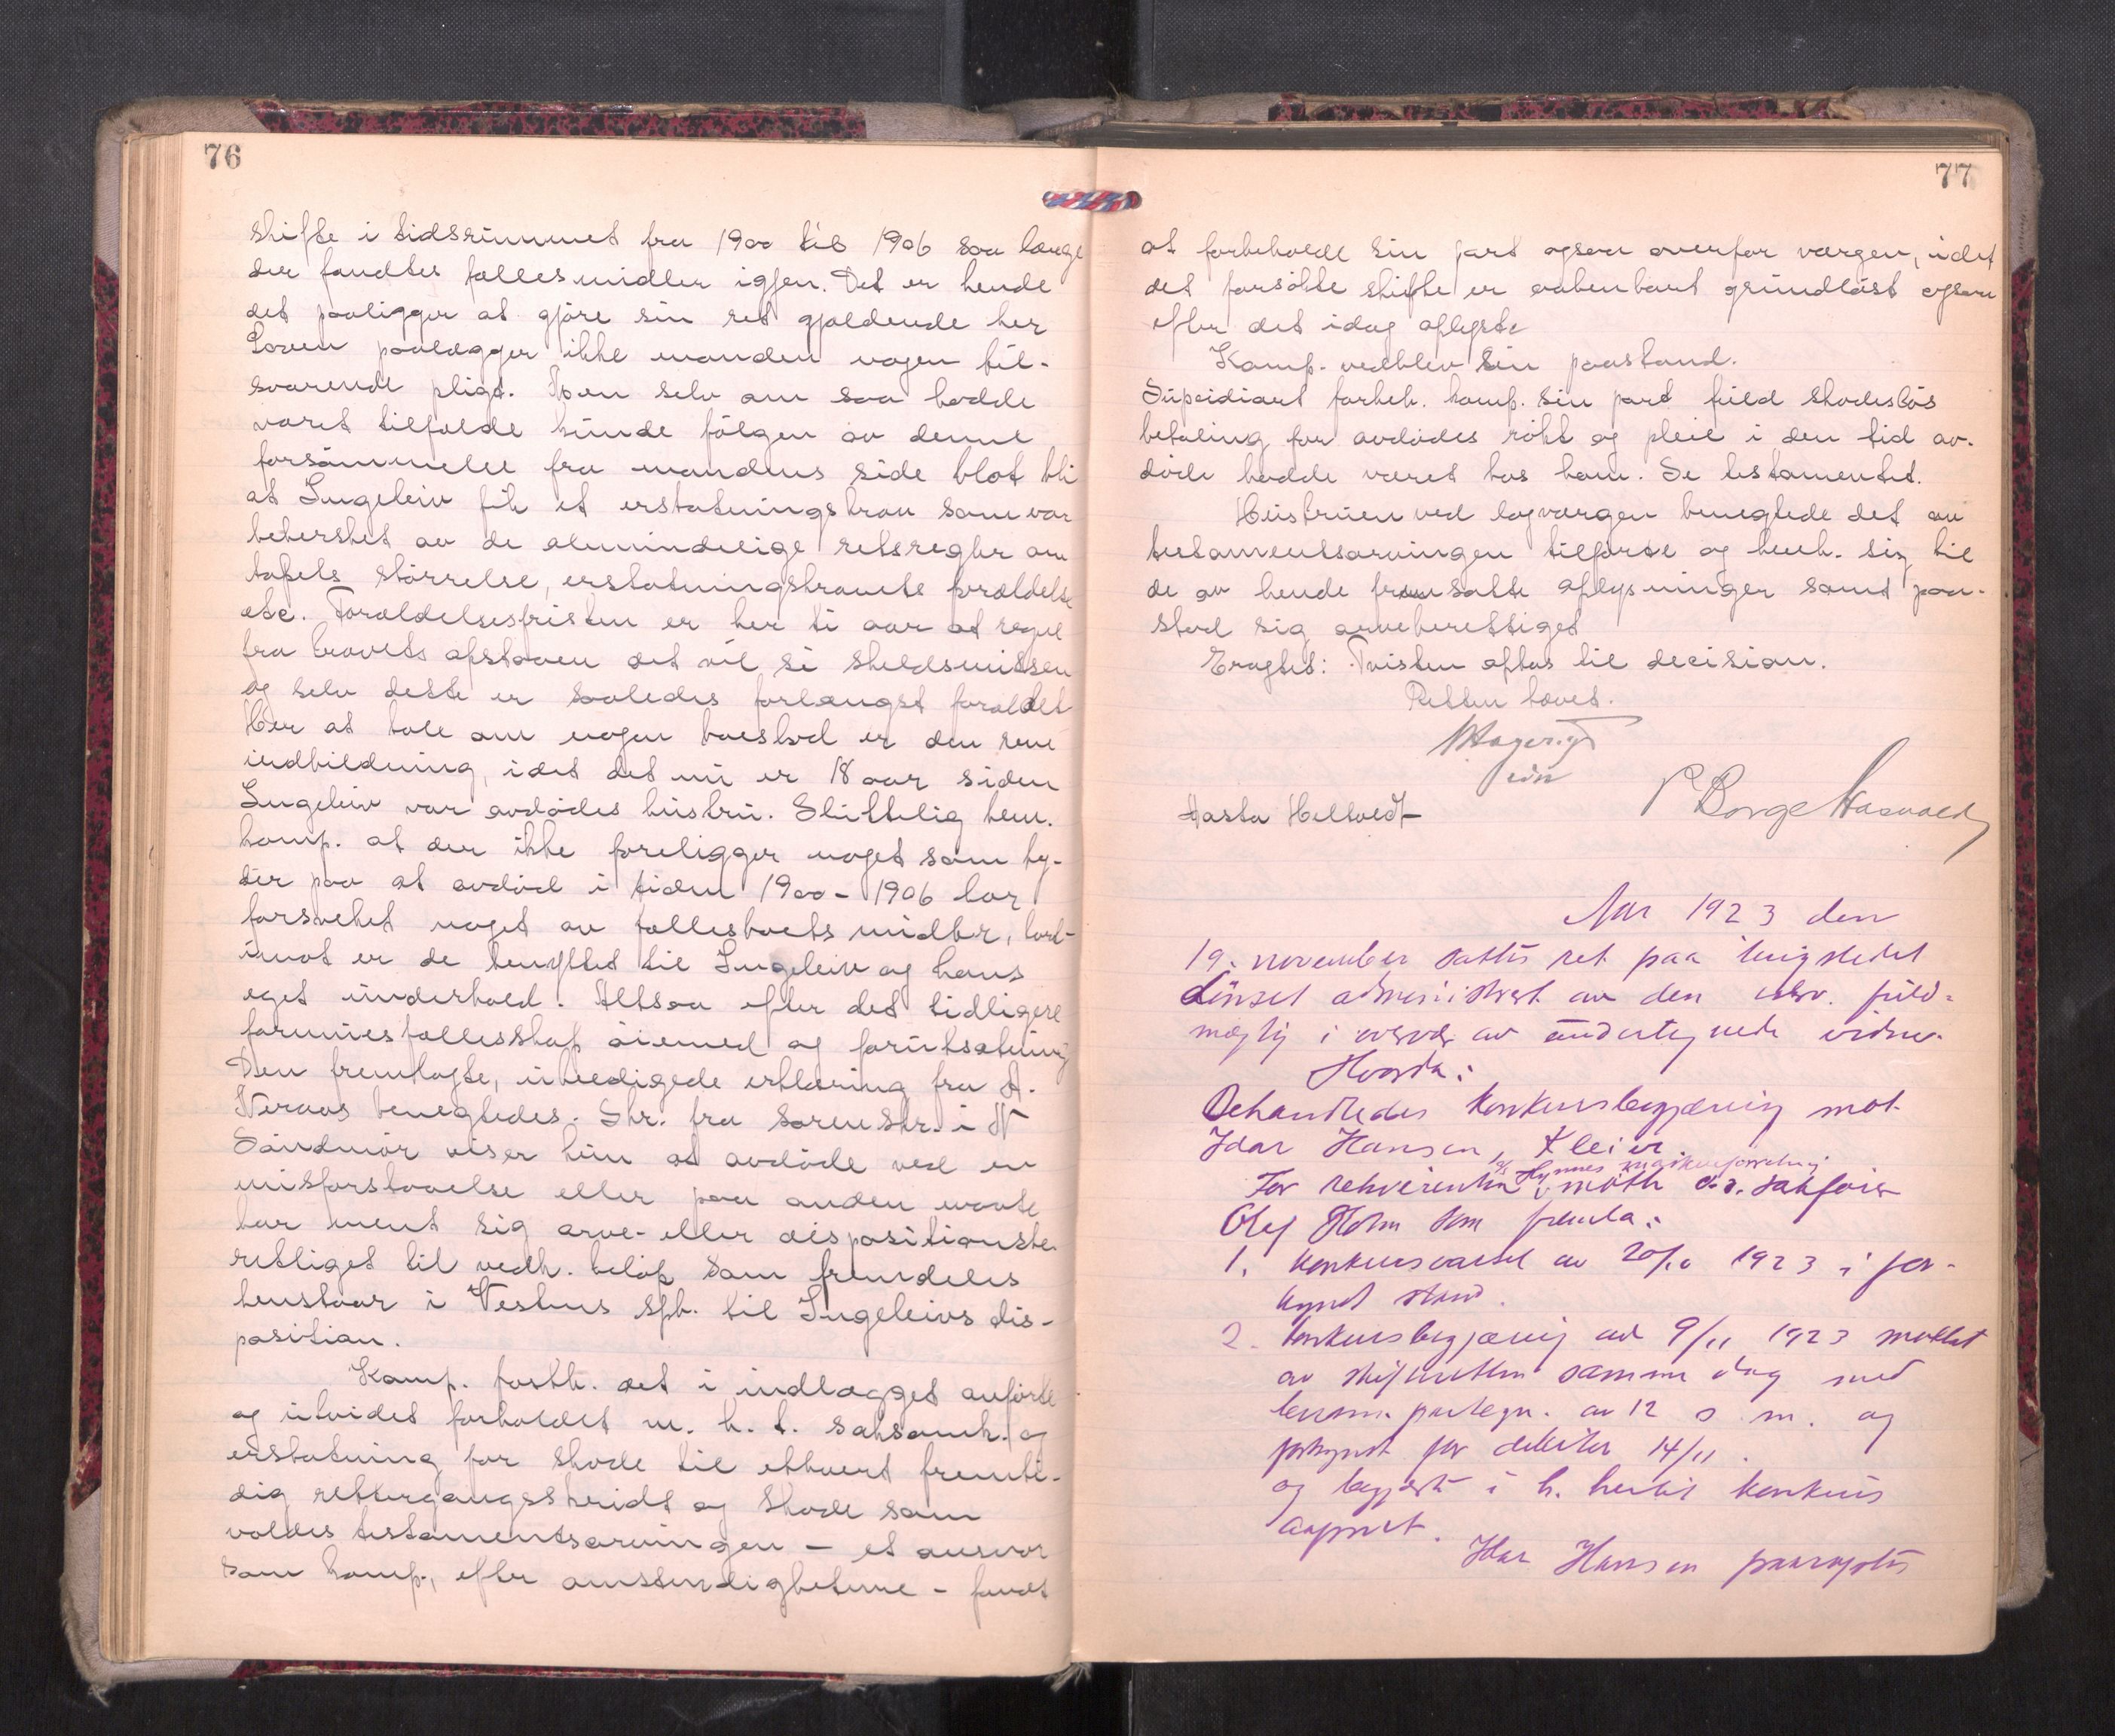 76
skifte i tidsrummet fra 1900 til 1906 saa længe
der fandtes fællesmidler igjen. Det er hende
det paaligger at gjöre sin ret gjældende her
Loven paalægger ikke manden nogen til-
svarende pligt. Men selv om saa hadde
været tilfælde kunde fölgen av denne
forsömmelse fra mandens side blot bli
at Ingeleiv fik et erstatningskrav som var
behersket av de almindelige retsregler om
tapets störrelse, erstatningskravets forældelse
etc. Forældelsesfristen er her ti aar at regne
fra kravets opstaaen det vil si skilsmissen
og selv dette er saaledes forlængst forældet
Her at tale om nogen boeslod er den rene
indbildning, idet det nu er 18 aar siden
Ingeleiv var avdödes hustru. Sluttelig bem.
komp. at der ikke foreligger noget som ty-
der paa at avdöd i tiden 1900 - 1906 har
forsøket noget av fællesboets midler, tvert-
imot er de benyttet til Ingeleiv og hans
eget underhold. Altsaa efter det tidligere
formuesfællesskap öiemed og forutsætning
Den fremlagte, ubeedigede erklæring fra A.
Neraas benegtedes. Skr. fra sorenskr. i N
Söndmör viser kun at avdöde ved en
misforstaaelse eller paa anden maate
har ment sig arve- eller dispositionsbe-
rettiget til vedk. belöp som fremdeles
henstaar i Vestnes spb. til Ingeleivs dis-
position.
Komp. fasth. det i indlægget anförte
og utvidet forholdet m. h. t. saksomk. og
erstatning for skade til ethvert fremti-
dig rettergangsskridt og skade som
voldes testamentsarvingen – et ansvar
som komp., efter omstendigheterne – fandt
77
at forbeholde sin part ogsaa overfor værgen, idet
det forsökte skifte er aabenbart grundlöst ogsaa
efter det idag oplyste
Komp. vedblev sin paastand.
Supsidiært forbeh. komp. sin part fuld skadeslös
betaling for avdödes rökt og pleie i den tid av-
döde hadde været hos ham. Se testamentet.
Hustruen ved lagværgen benegtede det av
testamentsarvingen tilförte og henh. sig til
de av hende fremsatte oplysninger samt paa-
stod sig arveberettiget
Eragtet: Tvisten optas til decision.
Retten hævet.
Aasta Heltvedt
P Borge Hasvold
Aar 1923 den
19. november sattes ret paa tingstedet
Lunset administrert av den edsv. fuld-
mægtig i overvær av undertegnede vidner.
Hvorda:
Behandledes konkursbegjæring mot
Idar Hansen, Kleive.
A/S Hynnes maskinforretning
For rekvirenten mötte o.r. sakförer
Olaf Holm som fremla:
1. konkursvarsel av 20/10 1923 i for-
kyndt stand.
2. konkursbegjæring av 9/11 1923 mottat
av skifteretten samme dag med
beram. paategn. av 12 s. m. og
forkyndt for debitor 14/11.
og begjærte i h. hertil konkurs
aapnet.
Idar Hansen paaroptes